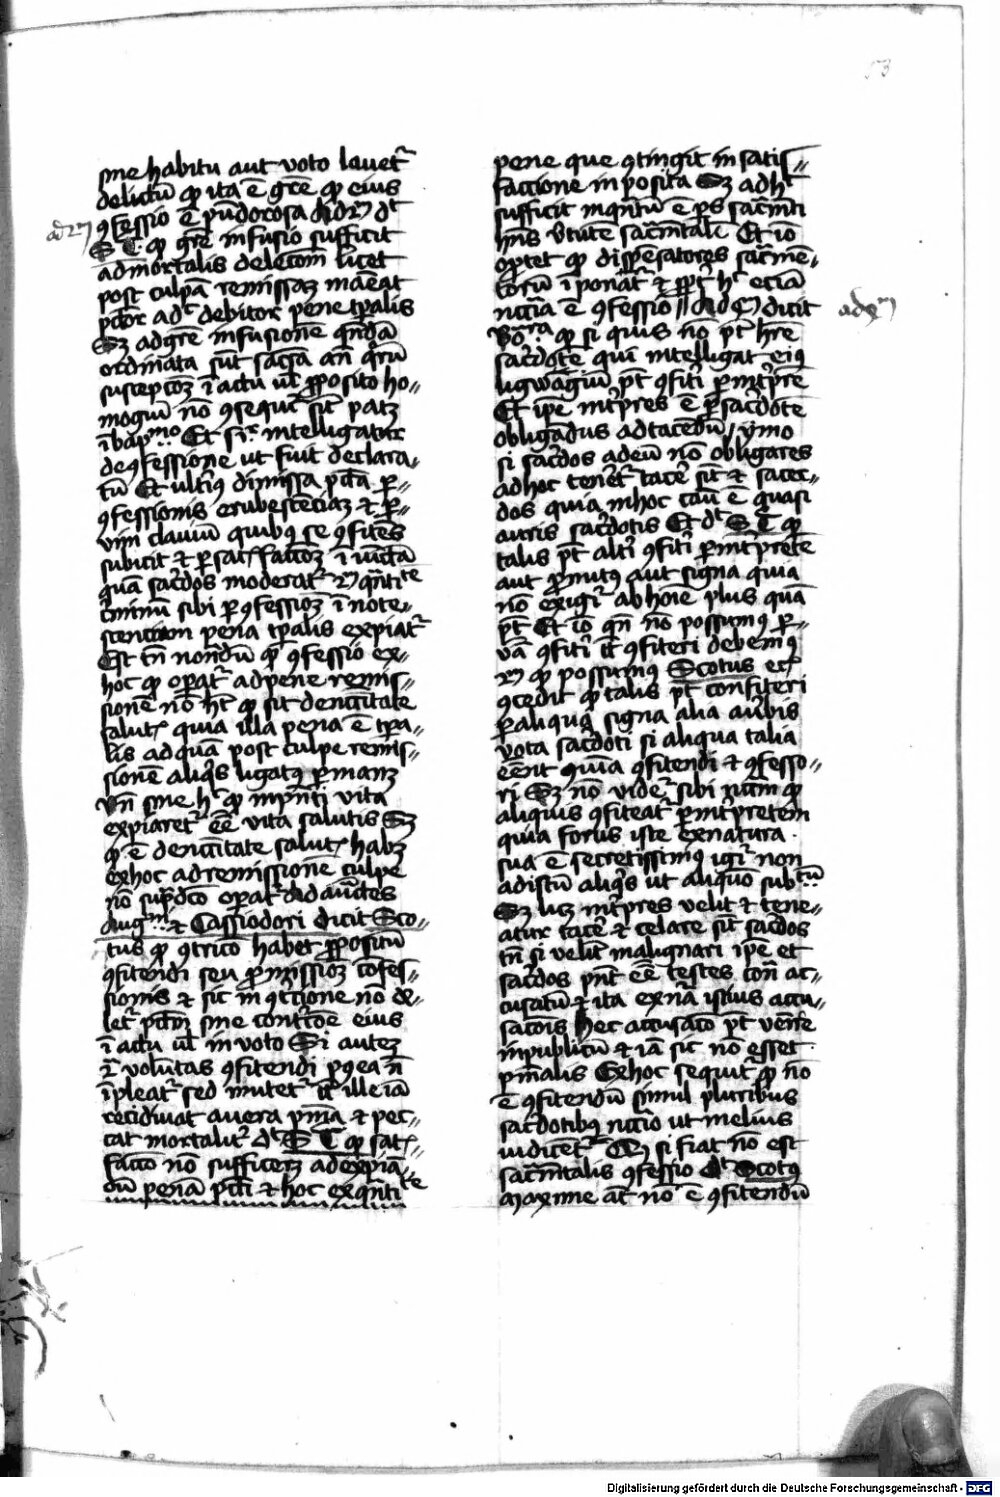 53
sine habitu aut voto lauet᷑
delictū ꝙ ita ē grē ꝙ eius
ꝯfessio ē pūderosa Ad 2m dt
ad 2m
S T ꝙ grē infusio sufficit
ad mortalis deletōm licet
post culpā remissaꝫ maēat
pctōr adc debitor pene tp̄alis
Sꝫ ad grē infusionē quēdā
ordinata sūt sacr̄a an̄ quoꝝ
ī actu ul̓ ꝓposito ho⸗
nō ꝯsequit᷑ sic patꝫ
ī bapmo Et sir intelligatur
de ꝯfessione ut fuit declara⸗
tū Et ultiꝰ dimissa pctā ꝑ⸗
ꝯfessionis erubescēciaꝫ ⁊ ꝑ⸗
vim clauiū quibꝰ se ꝯfitēs
subicit ⁊ ꝑ satisfactōꝫ ī iūctā
quā sac̓dos moderat᷑ qūtitate
c̓minū sibi ꝑ ꝯfessioꝫ ī note⸗
pena tp̄alis expiat᷑
Est tn̄ nondū ꝙ ꝯfessio ex⸗
hoc ꝙ oꝑat᷑ ad pene remis⸗
sionē nō ht ꝙ sit de nccītate
salut̓ quia illa pena ē tp̄ra⸗
lis ad quā post culpe remis⸗
sionē aliqͥs ligatꝰ ꝑmanꝫ
Vn̄ sine hc ꝙ in pn̄ti vita
expiaret᷑ eē vita salutis Sꝫ
ꝙ ē de nccītate salut̓ habꝫ
ex hoc ad remissionē culpe
nō sup̄dcō oꝑat᷑ Ad auctes
Augm ⁊ Cassiodori dicit Sco⸗
tus ꝙ ꝯtricō habet ꝓpositū
ꝯfitendi seu ꝓmissioꝫ cōfes⸗
sionis ⁊ sic in ꝯtcione nō de⸗
let᷑ pctm sine eius
ī actu ul̓ in voto Si auteꝫ
voluntas ꝯfitendi pꝯea nō
īpleat᷑ sed mutet᷑ tc ille iā
recidiuat a vera pnīa ⁊ pec⸗
cat mortalit᷑ dt S T ꝙ sat̓⸗
factō nō sufficeꝫ ad expiā⸗
dū penā pcti ⁊ hoc ex qn̄titate
pene que ꝯtingit in satis⸗
faccione inposita Sꝫ adhc
sufficit inqn̄tū ē ps sacm̄ti
hn̄s v̓tutē sacm̄talē Et iō
oꝑtet ꝙ dispēsatores sacr̄mē⸗
torū ī ponāt᷑ ⁊ ꝓpt̓ hc eciā
nccīa ē ꝯfessio Ad 3m dicit
ad 3m
Bo.ra ꝙ si quis nō pt hr̄e
sac̓dotē qui intelligat eiꝰ
ligwagiū pt ꝯfit̓i ꝑ int̓prē
Et ipē int̓pres ē ꝑ sac̓dotē
obligādus ad tacēdū / ymo
si sac̓dos adeū nō obligares
ad hoc tenet᷑ tace̓ sic̄ ⁊ sacer⸗
dos quia in hoc cāu ē quasi
auris sac̓dotis Et dt S T ꝙ
talis pt alt̓i ꝯfit̓i ꝑ int̓pretē
aut ꝑ nutꝰ aut signa quia
nō exigi᷑ ab hoīe plus quā
pt Et iō qn̄ nō possumꝰ ꝑ⸗
ꝯfit̓i tc ꝯfiteri debemꝰ
ꝙ possumꝰ Scotus ec̓
ꝯcedit ꝙ talis pt confiteri
ꝑ aliqua signa alia a v̓bis
nota sac̓doti si aliqua talia
eēnt ꝯfitendi ⁊ ꝯfesso⸗
ri Sꝫ nō videt᷑ sibi nccm ꝙ
aliquis ꝯfiteat᷑ ꝑ int̓pretem
quia forus iste ex natura
sua ē secretissimꝰ igi᷑ non
ad istū aliqͥs ut aliquō
Sꝫ licꝫ int̓pres velit ⁊ tene⸗
atur tace̓ ⁊ celare sic̄ sac̓dos
tn̄ si velit malignari ipē et
sac̓dos pn̄t eē testes contª ac⸗
cusatū ⁊ ita ex nā istius accu⸗
satōis hec accusacō pt venīre
in publicū ⁊ iā sic nō esset
Ex hoc sequit᷑ ꝙ nō
ē ꝯfitendū simul pluribus
sac̓dotibꝰ nccīo ut melius
iudicēt᷑ si fiat nō est
sacm̄talis ꝯfessio dt Scotꝰ
Maxime at nō ē ꝯfitendū
Digitalisierung gefördert durch die Deutsche Forschungsgemeinschaft - DFG